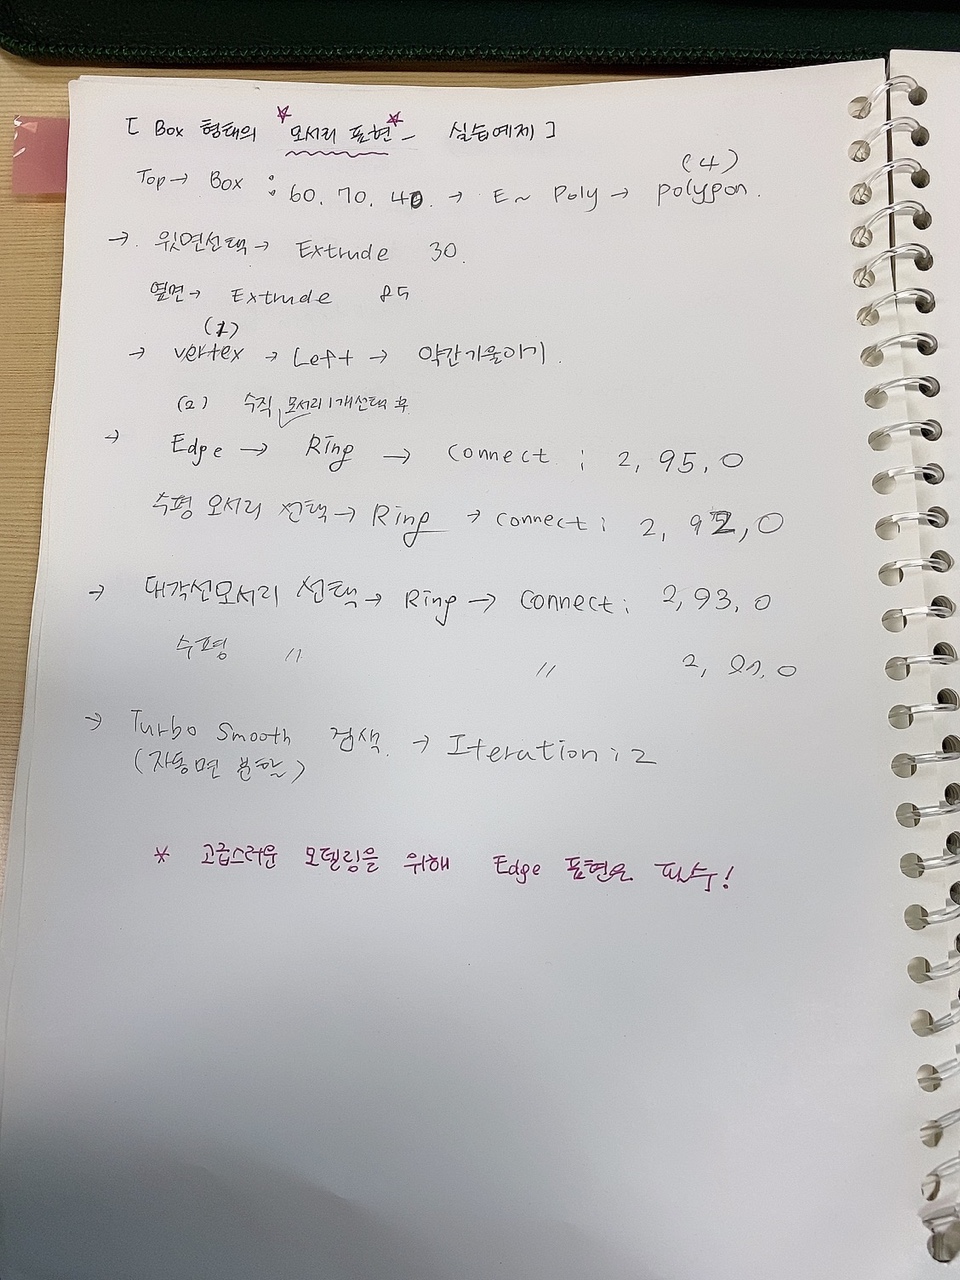 [ Box 형태의 ☆모서리 표현☆ - 실습예제 ]
(4)
Top → Box : 60. 70. 40. → E~ Poly → polygon.
→. 윗면선택 → Extrude 30.
옆면 → Extrude 85
(1)
→ vertex → Left → 약간기울이기.
(2) 수직 모서리 1개선택 후
→ Edge → Ring → connect : 2, 95, 0
수평 모서리 선택 → Ring → connect : 2, 92, 0
→ 대각선모서리 선택 → Ring → connect : 2, 93, 0
수평 〃 〃 2, 91, 0
→ Turbo Smooth 검색. → Iteration : 2
(자동면 분할)
* 고급스러운 모델링을 위해 Edge 표현은 필수!